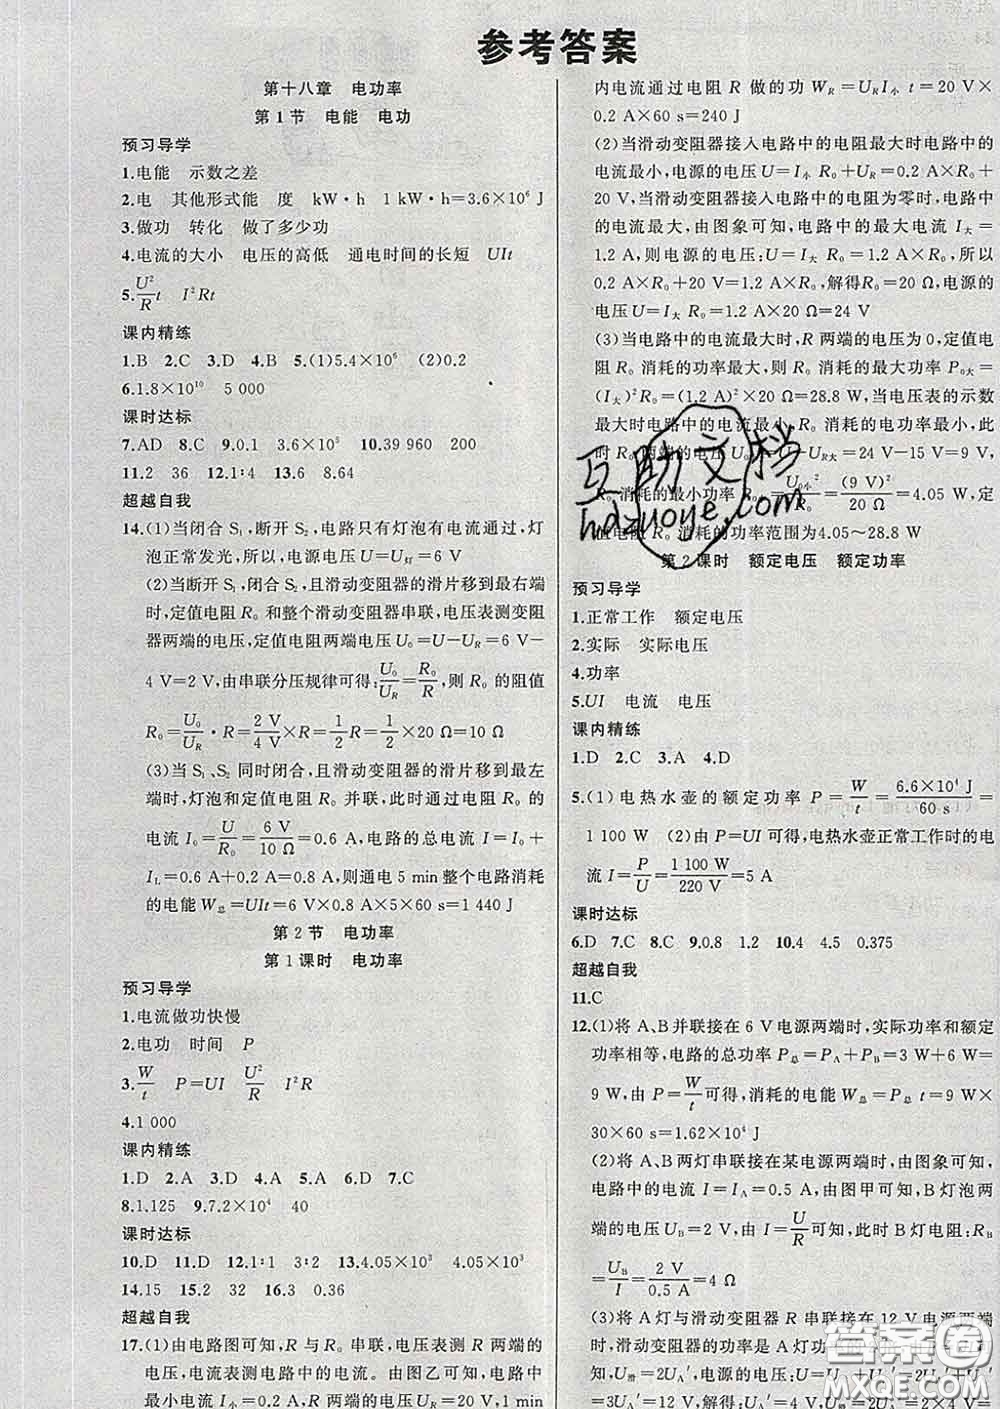 参考答案
第十八章 电功率
第1节 电能 电功
预习导学
1.电能 示数之差
2.电 其他形式能 度 kW·h 1 kW·h=3.6×10⁶ J
3.做功 转化 做了多少功
4.电流的大小 电压的高低 通电时间的长短 UIt
5.U²/R t I²Rt
课内精练
1.B 2.C 3.D 4.B 5.(1)5.4×10⁶ (2)0.2
6.1.8×10¹⁰ 5 000
课时达标
7.AD 8.C 9.0.1 3.6×10⁵ 10.39 960 200
11.2 36 12.1:4 13.6 8.64
超越自我
14.(1)当闭合 S₁,断开 S₂,电路只有灯泡有电流通过,灯
泡正常发光,所以,电源电压U=U灯=6 V
(2)当断开 S₁,闭合 S₂,且滑动变阻器的滑片移到最右端
时,定值电阻 R₀ 和整个滑动变阻器串联,电压表测变阻
器两端的电压,定值电阻两端电压U₀=U−U_R=6 V−
4 V=2 V,由串联分压规律可得:U₀/U_R=R₀/R,则 R₀ 的阻值
R₀=U₀/U_R·R=2 V/4 V×R=1/2R=1/2×20 Ω=10 Ω
(3)当 S₁、S₂ 同时闭合,且滑动变阻器的滑片移到最左
端时,灯泡和定值电阻 R₀ 并联,此时通过定值电阻的
电流 I₀=U/R₀=6 V/10 Ω=0.6 A,电路的总电流 I=I₀+
I_L=0.6 A+0.2 A=0.8 A,则通电 5 min 整个电路消耗
的电能W总=UIt=6 V×0.8 A×5×60 s=1 440 J
第2节 电功率
第1课时 电功率
预习导学
1.电流做功快慢
2.电功 时间 P
3.W/t P=UI U²/R I²R
4.1 000
课内精练
1.D 2.A 3.A 4.D 5.D 6.A 7.C
8.1.125 9.7.2×10⁴ 40
课时达标
10.D 11.D 12.1:1 3:2 13.4.05×10³ 4.05×10³
14.15 15.2 32 16.3 0.36
超越自我
17.(1)由电路图可知,R 与 R₀ 串联,电压表测 R 两端的
电压,电流表测电路中的电流。由图乙可知,电路中的
最小电流 I=0.2 A 时,R 两端的电压U_R=20 V,1 min
内电流通过电阻 R 做的功 W_R=U_R I小 t=20 V×
0.2 A×60 s=240 J
(2)当滑动变阻器接入电路中的电阻最大时电路中的
电流最小,电源的电压U=I小 R₀+U_R=0.2 A×R₀+
20 V,当滑动变阻器接入电路中的电阻为零时,电路中
的电流最大,由图象可知,电路中的最大电流 I大=
1.2 A,则电源的电压:U=I大 R₀=1.2 A×R₀,所以
0.2 A×R₀+20 V=1.2 A×R₀,解得R₀=20 Ω,电源的
电压U=I大 R₀=1.2 A×20 Ω=24 V
(3)当电路中的电流最大时,R 两端的电压为0,定值电
阻 R₀ 消耗的功率最大,则 R₀ 的最大功率 P₀大=
(I大)²R₀=(1.2 A)²×20 Ω=28.8 W,当电压表的示数
最大时电路中的电流最小,R₀ 消耗的功率最小,此
时 R₀ 两端的电压U₀=U−U_R大=24 V−15 V=9 V,
R₀ 消耗的最小功率 P₀小=U₀小²/R₀=(9 V)²/20 Ω=4.05 W,定
值电阻 R₀ 消耗的功率范围为4.05~28.8 W
第2课时 额定电压 额定功率
预习导学
1.正常工作 额定电压
2.实际 实际电压
4.功率
5.UI 电流 电压
课内精练
1.D 2.C 3.A 4.D
5.(1)电热水壶的额定功率 P=W/t=6.6×10⁴ J/60 s=
1 100 W (2)由 P=UI 可得,电热水壶正常工作时的电
流 I=P/U=1 100 W/220 V=5 A
课时达标
6.D 7.C 8.C 9.0.8 1.2 10.4 4.5 0.375
超越自我
11.C
12.(1)将 A、B并联接在 6 V 电源两端时,实际功率和额定
功率相等,电路的总功率 P总=P_A+P_B=3 W+6 W=
9 W,由 P=W/t可得,消耗的电能 W总=P总 t=9 W×
30×60 s=1.62×10⁴ J
(2)将 A、B两灯串联接在某电源两端时,由图象可知,
电路中的电流 I=I_A=0.5 A,由图甲可知,B灯泡两
端的电压U_B=2 V,由 I=U/R可知,此时 B 灯电阻:R_B
=U_B/I=2 V/0.5 A=4 Ω
(3)将 A灯与滑动变阻器 R 串联接在12 V电源两端
时,滑动变阻器的功率是 A灯功
知,U滑=2U_A′,电源的电压:U=U滑+U_A′=2U_A′+
互助文档
hdzuoye.com
答案圈
MXQE.COM